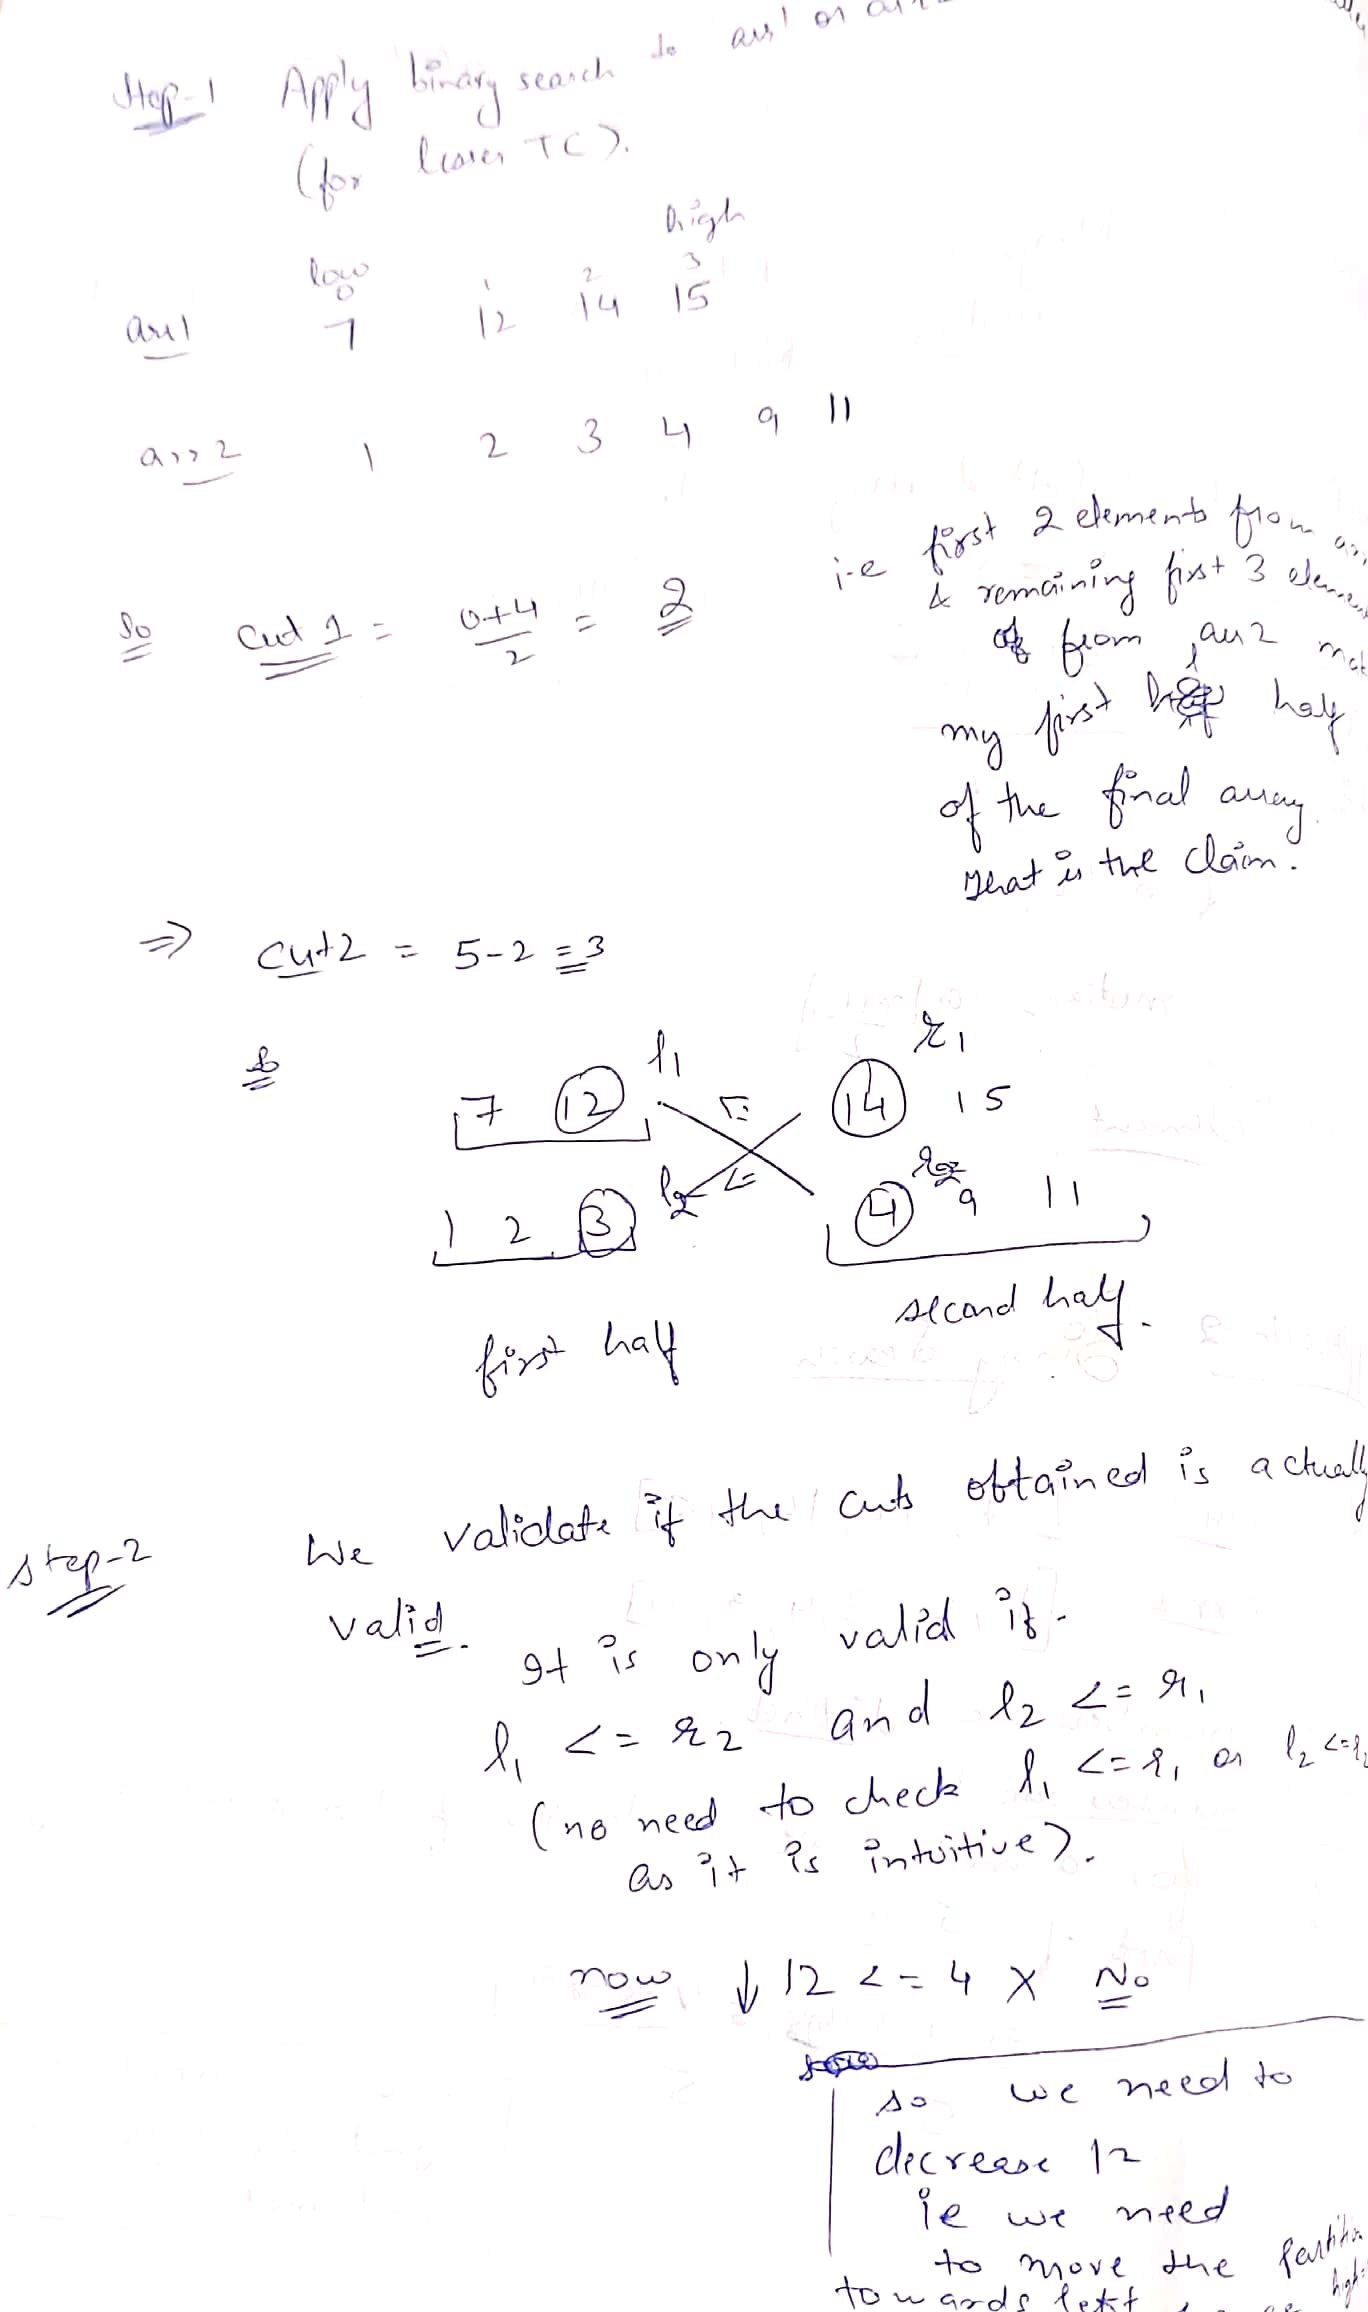 Step-1 Apply binary search to arr1 or
(for lesser TC).
low high
0 1 2 3
arr1 7 12 14 15
arr2 1 2 3 4 9 11
So Cut 1 = 0+4/2 = 2
i.e first 2 elements from
& remaining first 3
from arr2
my first half
of the final array.
That is the claim.
=> cut2 = 5-2 = 3
So
l1 r1
7 12 <= 14 15
l2 <= r2
1 2 3 4 9 11
first half second half.
step-2 We validate if the cuts obtained is actually
valid.
It is only valid if -
l1 <= r2 and l2 <= r1
(no need to check l1 <= r1 or l2 <= r2
as it is intuitive).
now ↓ 12 <= 4 X No
so we need to
decrease 12
ie we need
to move the partition
towards left